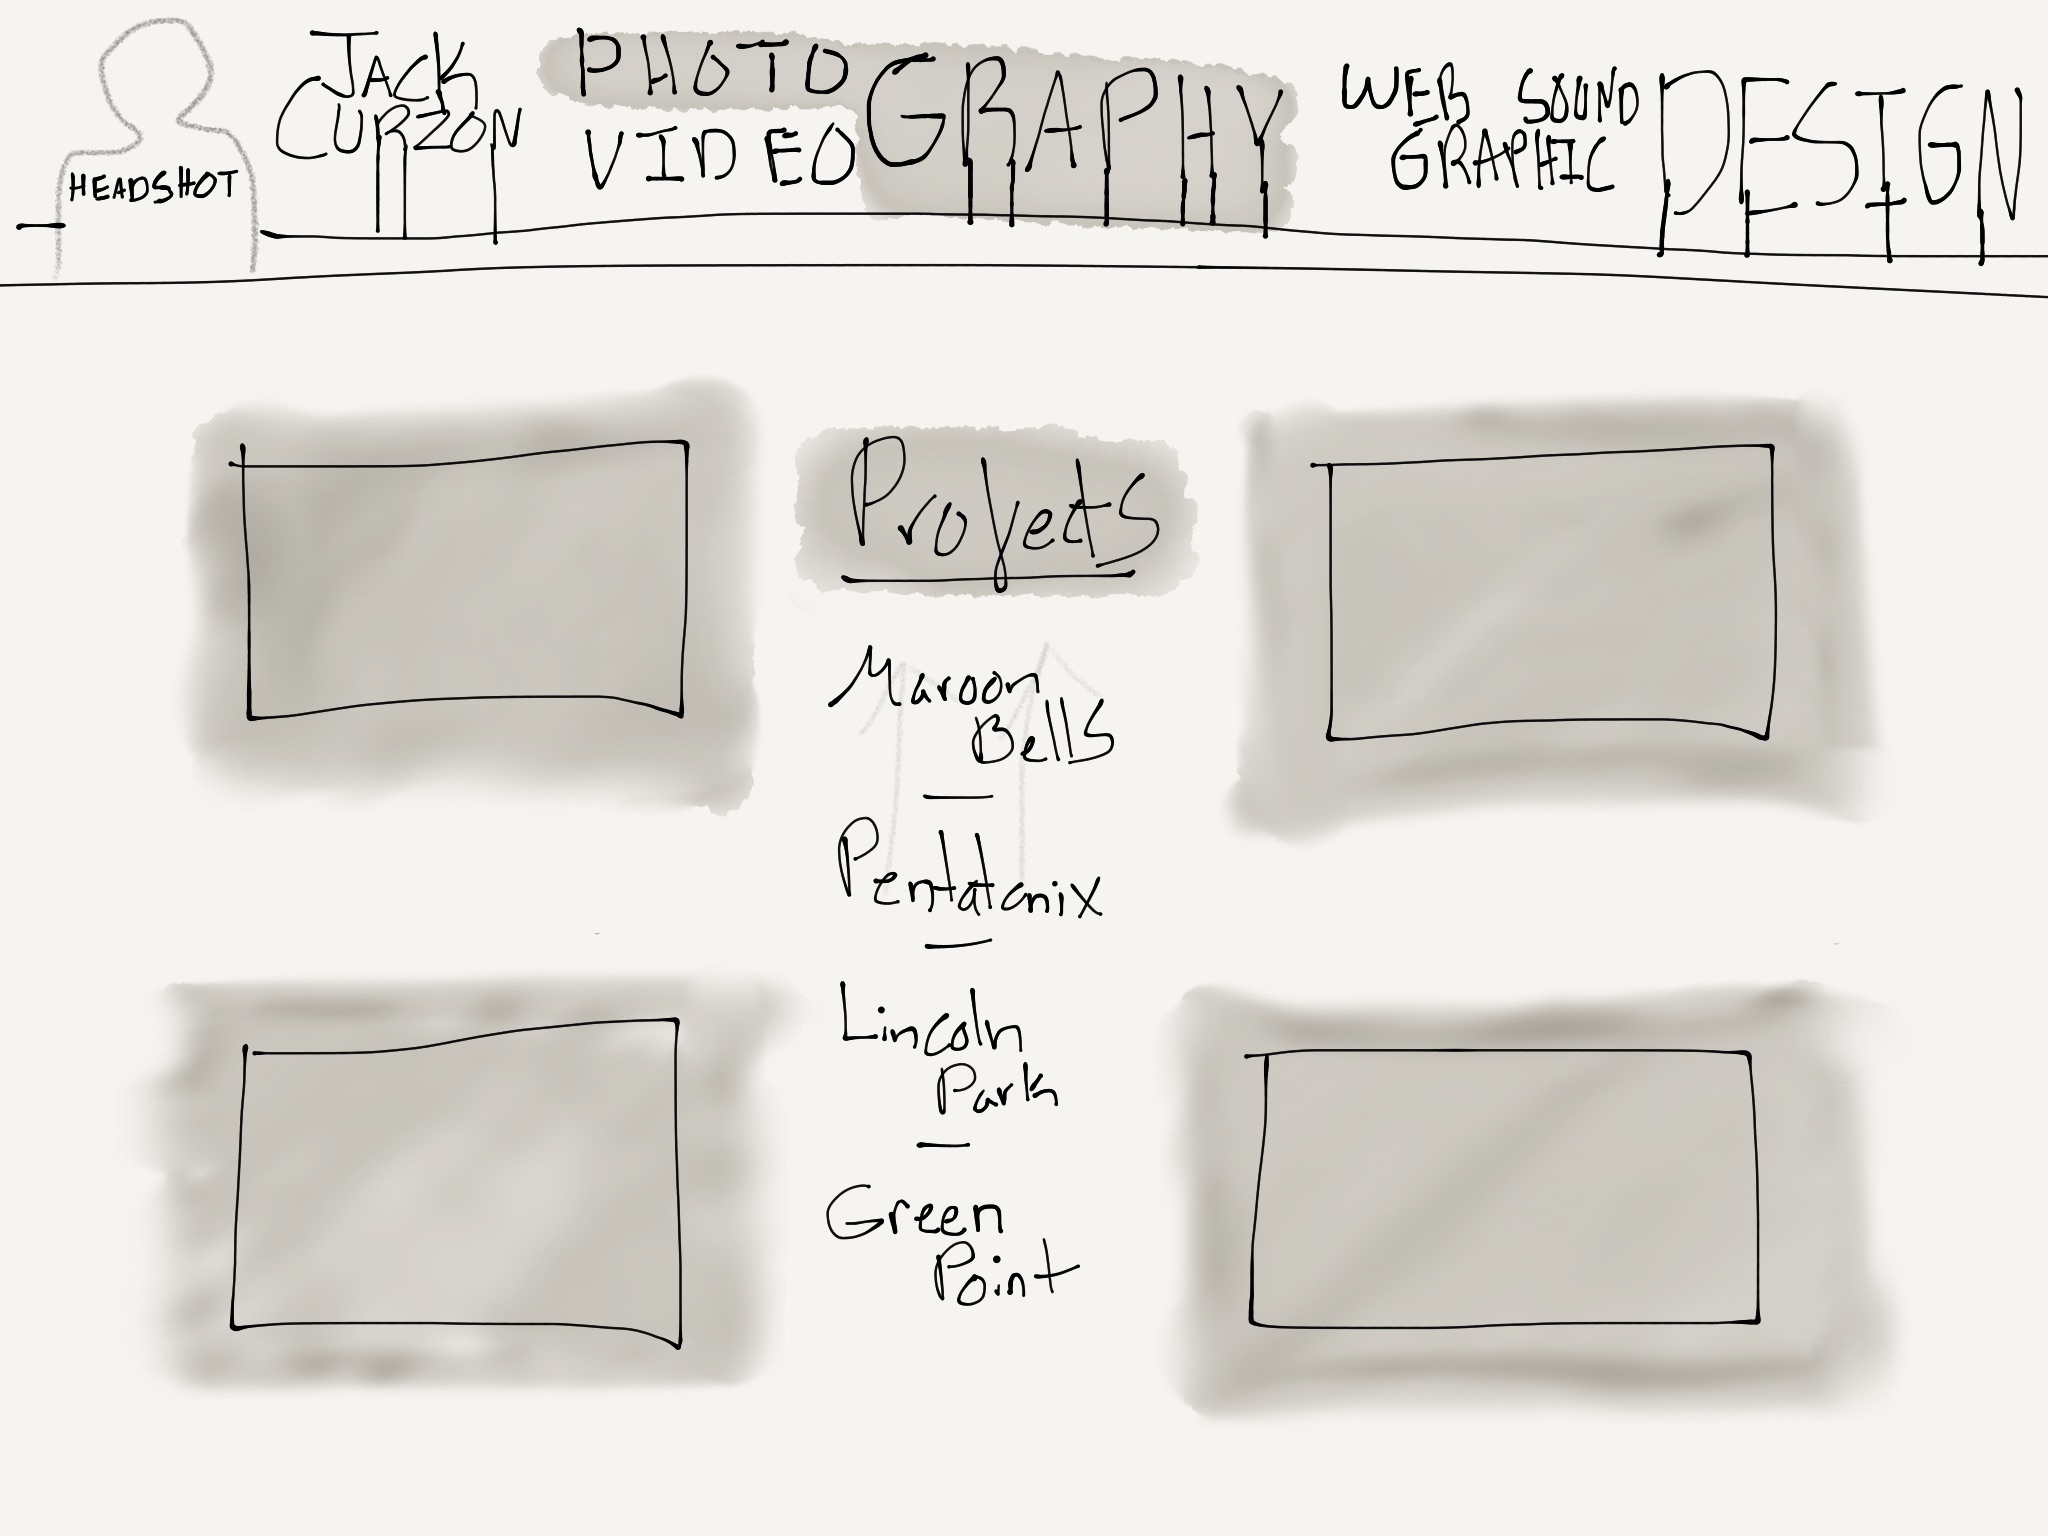 HEADSHOT
JACK
CURZON
PHOTO
VIDEO
GRAPHY
WEB SOUND
GRAPHIC
DESIGN
Proyects
Maroon
Bells
Pentatonix
Lincoln
Park
Green
Point